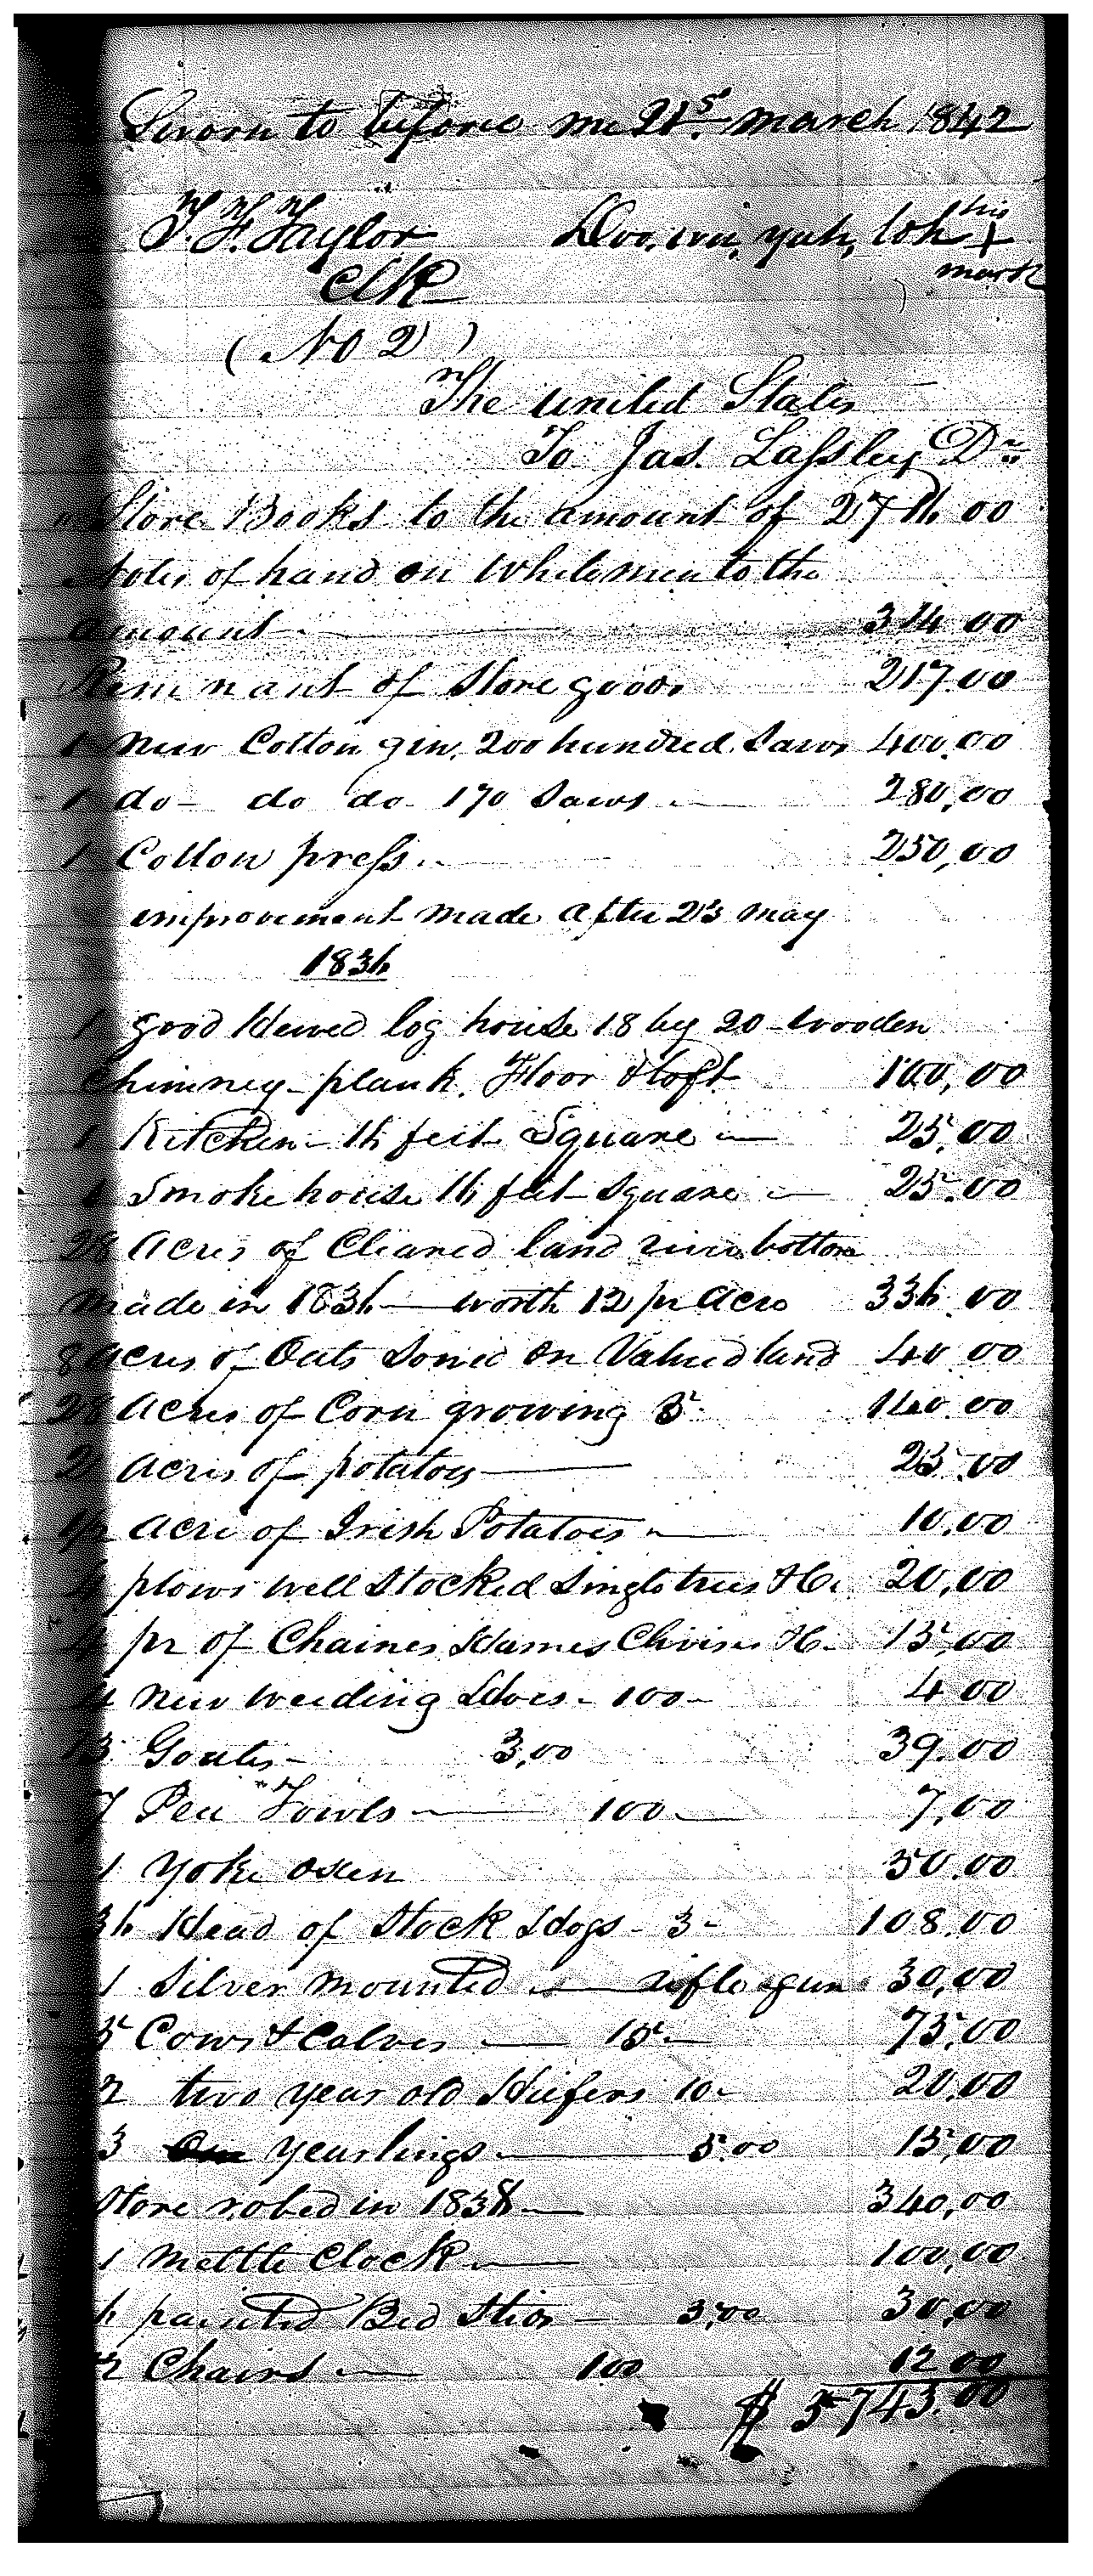 Sworn to before me 21st march 1842
T. F. Taylor Doo, wu, yah, loh his
Clk X
mark
(No 2)
The united States
To Jas. Lassley Dr
Store Books to the amount of 2716 00
Notes of hand on Whitemen to the
amount 314 00
Remnant of Store goods 217.00
1 new Cotton gin, 200 hundred Saws 400.00
1 do do do 170 Saws 280,00
1 Cotton press 250,00
improvement made after 23 may
1836
1 good Hewed log house 18 by 20 wooden
Chimney plank Floor & loft 100,00
1 Kitchen 16 feet Square 25.00
1 Smoke house 16 feet Square 25.00
28 Acres of Cleared land river bottom
made in 1836 worth 12 pr Acre 336.00
8 acres of Oats Sowed on Valued land 40 00
28 Acres of Corn growing 5 140.00
2 Acres of potatoes 25.00
1/2 Acre of Irish Potatoes 10.00
4 plows well Stocked Singletrees &c. 20,00
4 pr of Chaines Hames Clivises &c 15,00
4 new weeding Hoes - 100 - 4.00
13 Goats - 3,00 39.00
7 Pea Fowls 100 7,00
1 Yoke oxen 50.00
36 Head of Stock Hogs - 3 - 108.00
1 Silver mounted rifle gun 30,00
5 Cows & Calves 15 75,00
2 two year old Heifers 10 20,00
3 yearlings 5.00 15,00
Store robed in 1838 340,00
1 mettle Clock 100,00
6 painted Bed Steds 5,00 30,00
12 Chairs 100 12 00
$ 5743.00